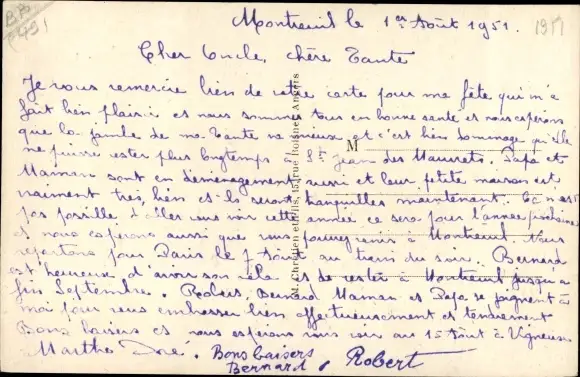 Montreuil le 1er Août 1951.
1951
Cher Oncle, chère Tante
Je vous remercie bien de votre carte pour ma fête qui m'a
fait bien plaisir et nous sommes tous en bonne santé et nous espérons
que la jambe de ma Tante va mieux et c'est bien dommage qu'elle
ne puisse rester plus longtemps à St Jean des Mauvrets. Papa et
Maman sont en déménagement aussi et leur petite maison est
vraiment très bien et ils seront tranquilles maintenant. Ce n'est
pas possible d'aller vous voir cette année ce sera pour l'année prochaine
et nous espérons aussi que vous pourrez venir à Montreuil. Nous
repartons pour Paris le 7 Août au train du soir. Bernard
est heureux d'avoir son et de rester à Montreuil jusqu'à
fin Septembre. Robert, Bernard Maman et Papa se joignent à
moi pour vous embrasser bien affectueusement et tendrement
Bons baisers et nous espérons vous voir au 15 Août à Vigneux
Marthe
Bons baisers
Bernard, Robert
M
M. Chrétien et fils, 15, rue Boisnet, Angers